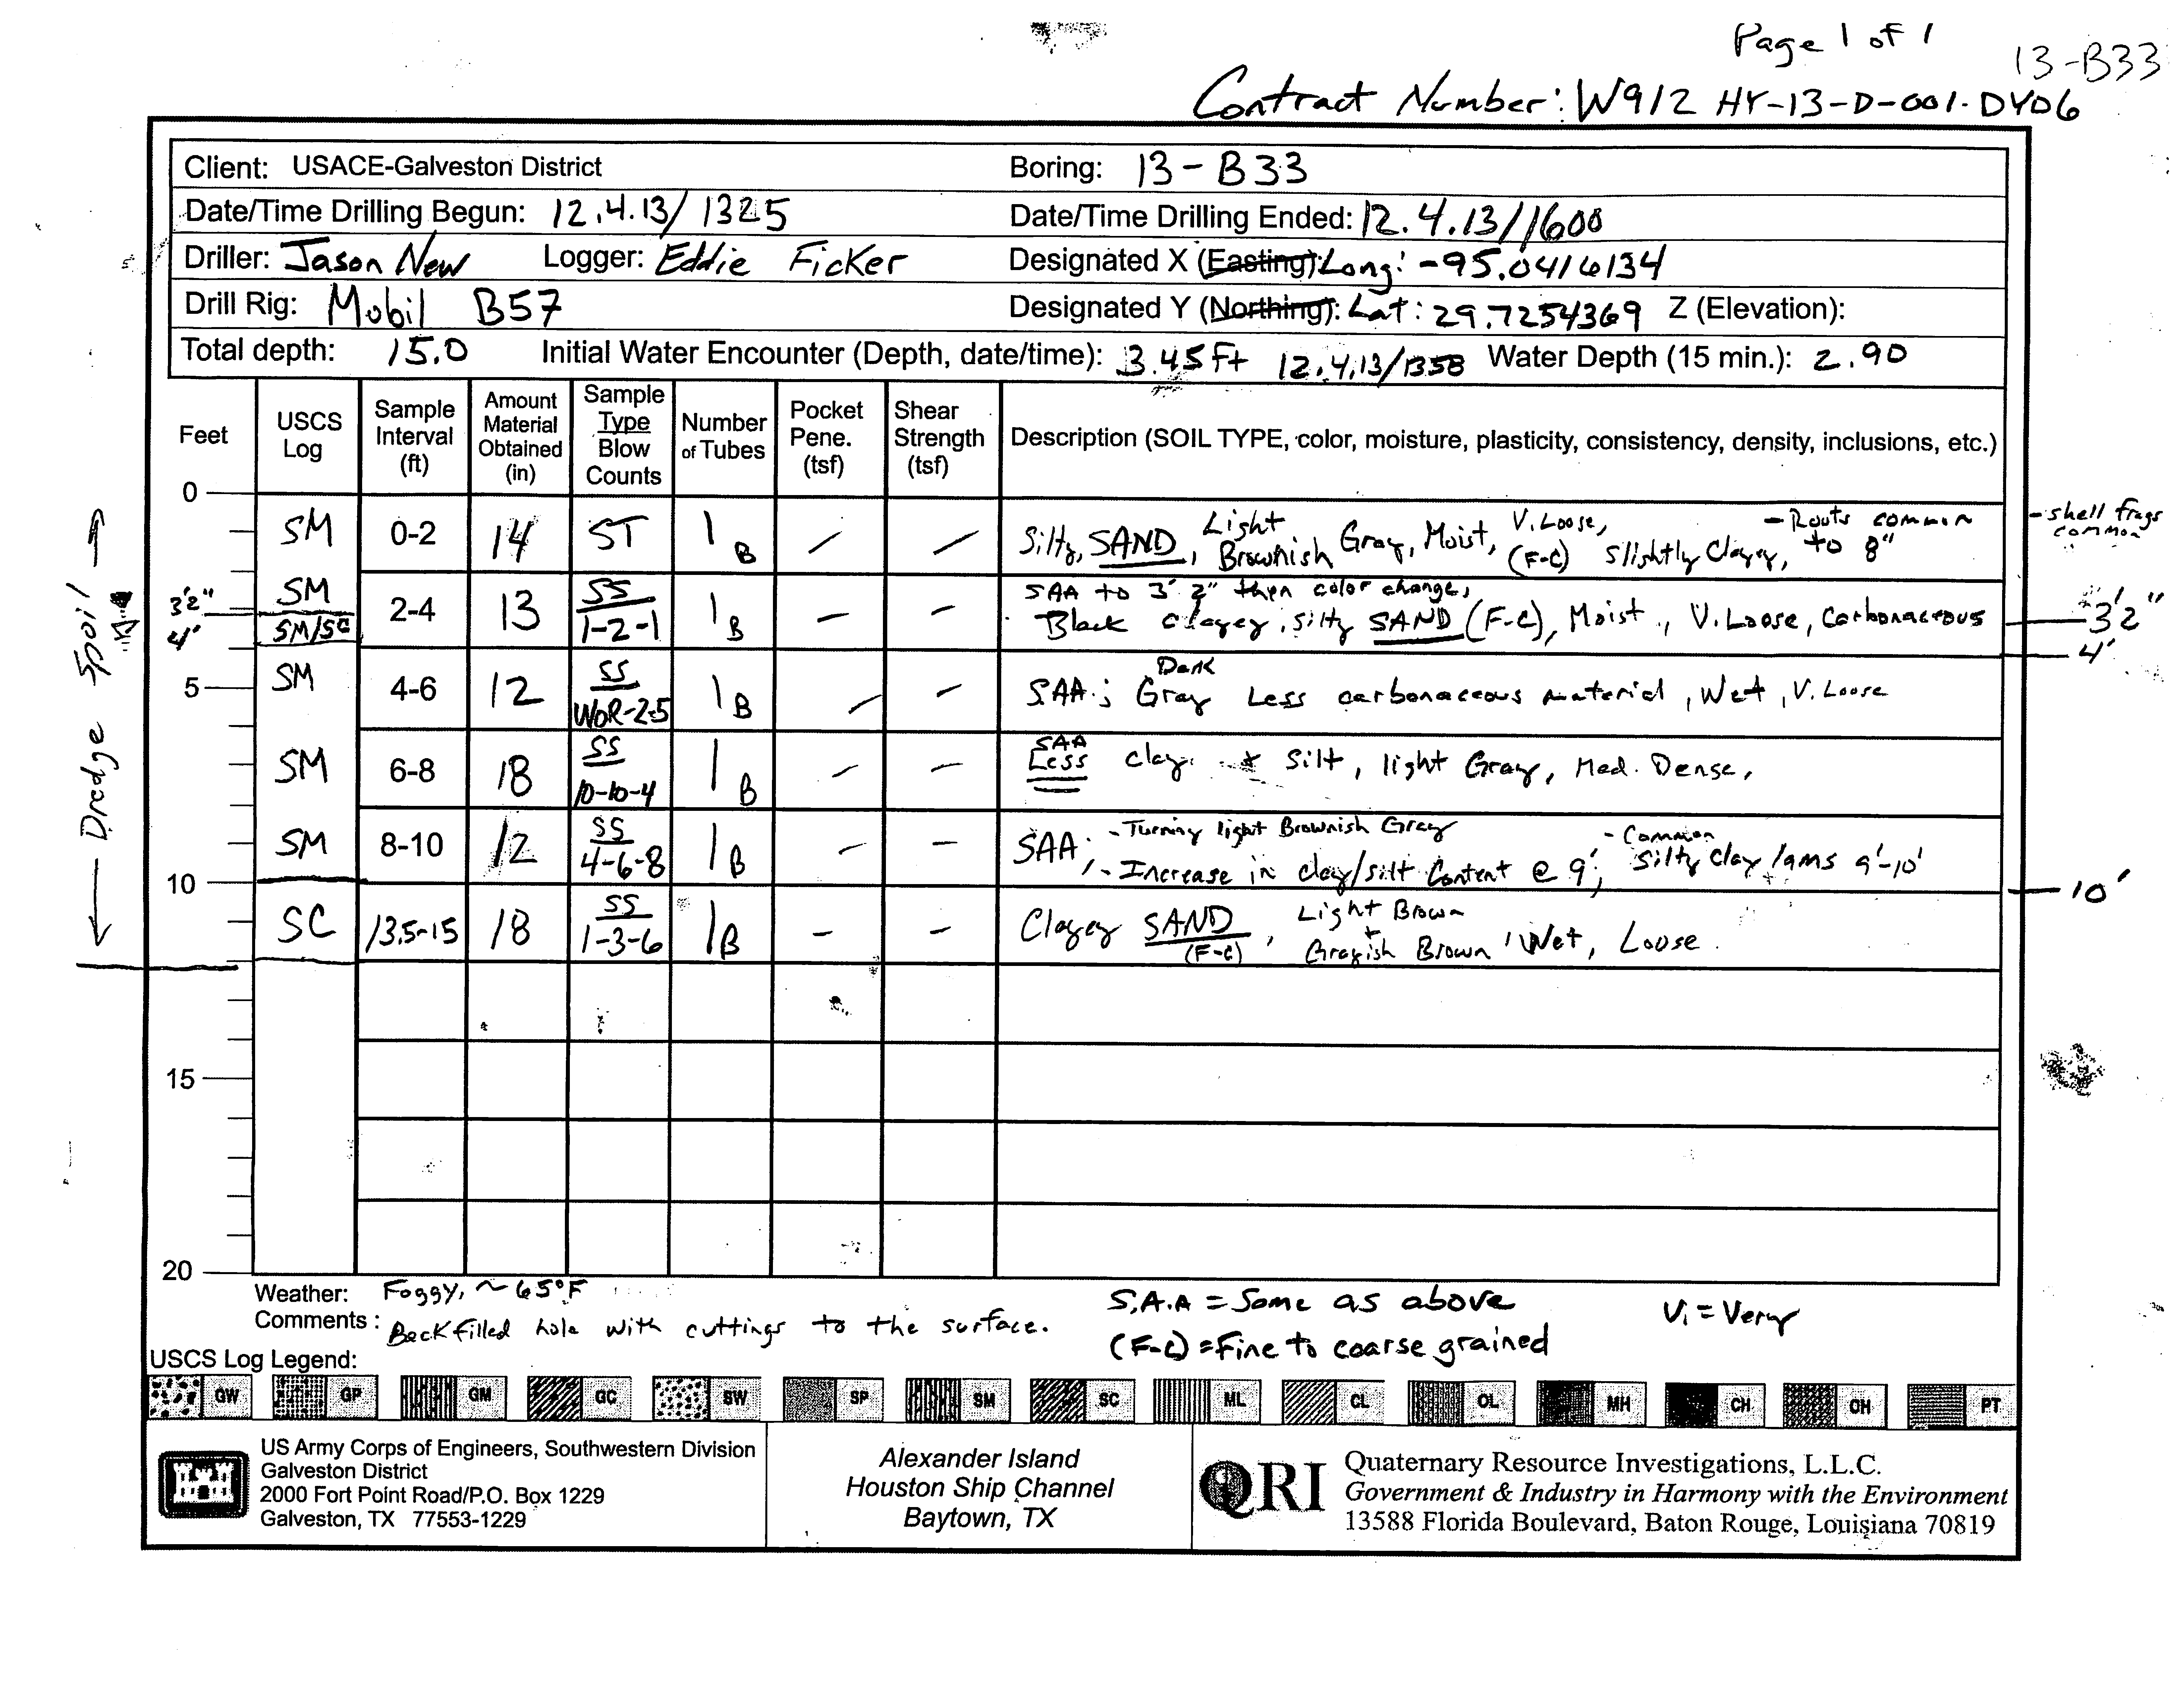 Page 1 of 1
13-B33
Contract Number: W912 HY-13-D-001-DY06
Client: USACE-Galveston District Boring: 13-B33
Date/Time Drilling Begun: 12.4.13/1325 Date/Time Drilling Ended: 12.4.13/1600
Driller: Jason New Logger: Eddie Ficker Designated X (Easting): Long: -95.0416134
Drill Rig: Mobil B57 Designated Y (Northing): Lat: 29.7254369 Z (Elevation):
Total depth: 15.0 Initial Water Encounter (Depth, date/time): 3.45 Ft 12.4.13/1358 Water Depth (15 min.): 2.90
Feet USCS Log Sample Interval (ft) Amount Material Obtained (in) Sample Type Blow Counts Number of Tubes Pocket Pene. (tsf) Shear Strength (tsf) Description (SOIL TYPE, color, moisture, plasticity, consistency, density, inclusions, etc.)
0
SM 0-2 14 ST 1 B / / Silty, SAND, Light Brownish Gray, Moist, V. Loose, (F-C) Slightly Clayey, - Roots common to 8" - shell frags common
3'2" 4' SM SM/SC 2-4 13 SS 1-2-1 1 B - - SAA to 3' 2" then color change, Black clayey, silty SAND (F-C), Moist, V. Loose, Carbonaceous 3'2"
4'
5 SM 4-6 12 SS WOR-2-5 1 B - - SAA; Dark Gray Less carbonaceous material, Wet, V. Loose
SM 6-8 18 SS 10-10-4 1 B - - SAA Less clay + silt, light Gray, Med. Dense,
SM 8-10 12 SS 4-6-8 1 B - - SAA; - Turning light Brownish Gray, - Increase in clay/silt Content @ 9'; - Common silty clay lams 9'-10'
10 10'
SC 13.5-15 18 SS 1-3-6 1 B - - Clayey SAND (F-C), Light Brown + Grayish Brown, Wet, Loose.
← Dredge Spoil →
15
20
Weather: Foggy, ~65°F
Comments: Backfilled hole with cuttings to the surface.
S.A.A = Same as above V. = Very
(F-C) = Fine to coarse grained
USCS Log Legend:
GW GP GM GC SW SP SM SC ML CL OL MH CH OH PT
US Army Corps of Engineers, Southwestern Division
Galveston District
2000 Fort Point Road/P.O. Box 1229
Galveston, TX 77553-1229
Alexander Island
Houston Ship Channel
Baytown, TX
QRI
Quaternary Resource Investigations, L.L.C.
Government & Industry in Harmony with the Environment
13588 Florida Boulevard, Baton Rouge, Louisiana 70819